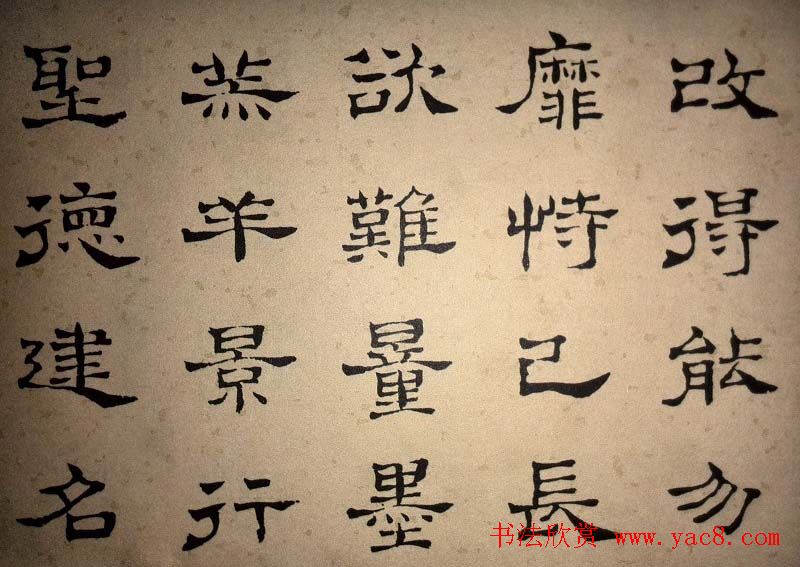 改得能勿
靡恃己長
欲難量墨
羔羊景行
聖德建名
书法欣赏 www.yac8.com